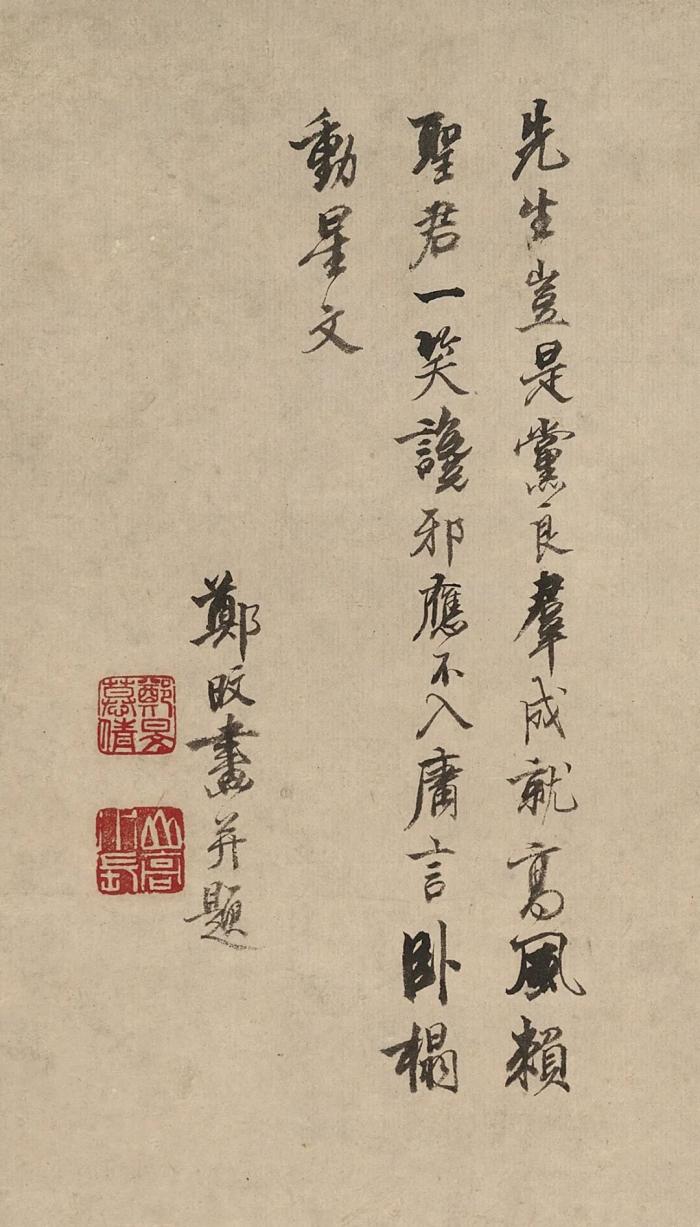 先生豈是黨良羣成就高風賴
聖君一笑讒邪應不入庸言臥榻
動星文
鄭旼畫并題
鄭旼慕倩
山高水長